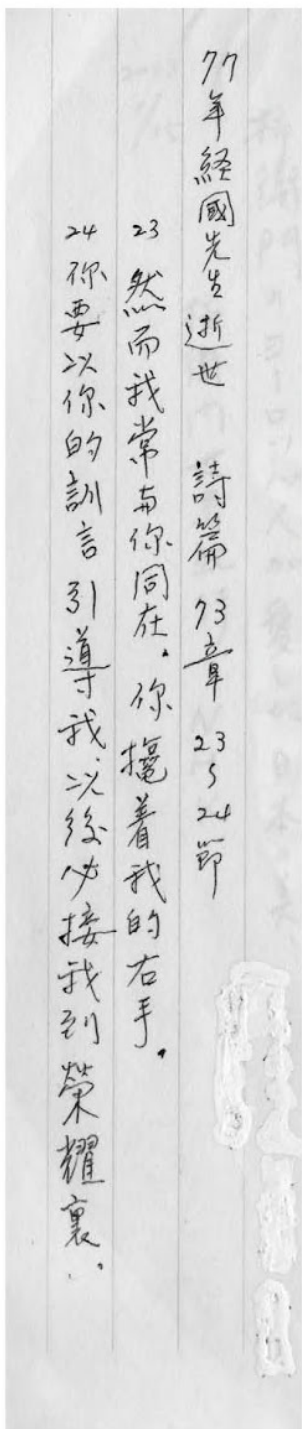 77年経國先生逝世 詩篇 73章 23~24節
23 然而我常與你同在.你攙着我的右手.
24 你要以你的訓言引導我、以後必接我到榮耀裏.